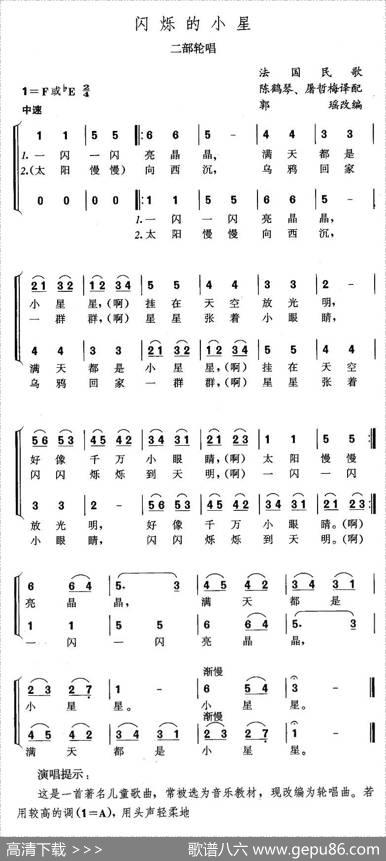 闪烁的小星
二部轮唱
1=F或♭E 2/4
法国民歌
陈鹤琴、屠哲梅译配
中速
郭瑶改编
1 1 5 5 6 6 5 - 4 4 3 3
1.一闪一闪 亮晶晶, 满天都是
2.(太阳慢慢)向西沉, 乌鸦回家
0 0 0 0 1 1 5 5 6 6 5 -
1.一闪一闪亮晶晶,
2.太阳慢慢向西沉,
21 32 12 34 5 5 4 4 3 3 2 -
小星星,(啊)挂在天空放光明,
一群群,(啊)星星张着小眼睛,
4 4 3 3 21 32 12 34 5 5 4 4
满天都是小星星,(啊)挂在天空
乌鸦回家一群群,(啊)星星张着
56 53 45 42 34 31 21 23 1 1 5 5
好像千万小眼睛,(啊)太阳慢慢
闪闪烁烁到天明,(啊)一闪一闪
3 3 2 - 56 53 45 42 34 31 21 23
放光明, 好像千万小眼睛。(啊)
小眼睛, 闪闪烁烁到天明。(啊)
6 64 5. 3 45 42 34 31
亮晶晶, 满天都是
1 1 5 5 6 64 5. 3
一闪一闪亮晶晶,
渐慢
23 27 1 - 6 54 3 -
小星星。 小星星。
渐慢
45 42 34 31 23 27 1 -
满天都是小星星。
演唱提示:
这是一首著名儿童歌曲,常被选为音乐教材,现改编为轮唱曲。若
用较高的调(1=A),用头声轻柔地
高清下载 >>> 歌谱八六 www.gepu86.com